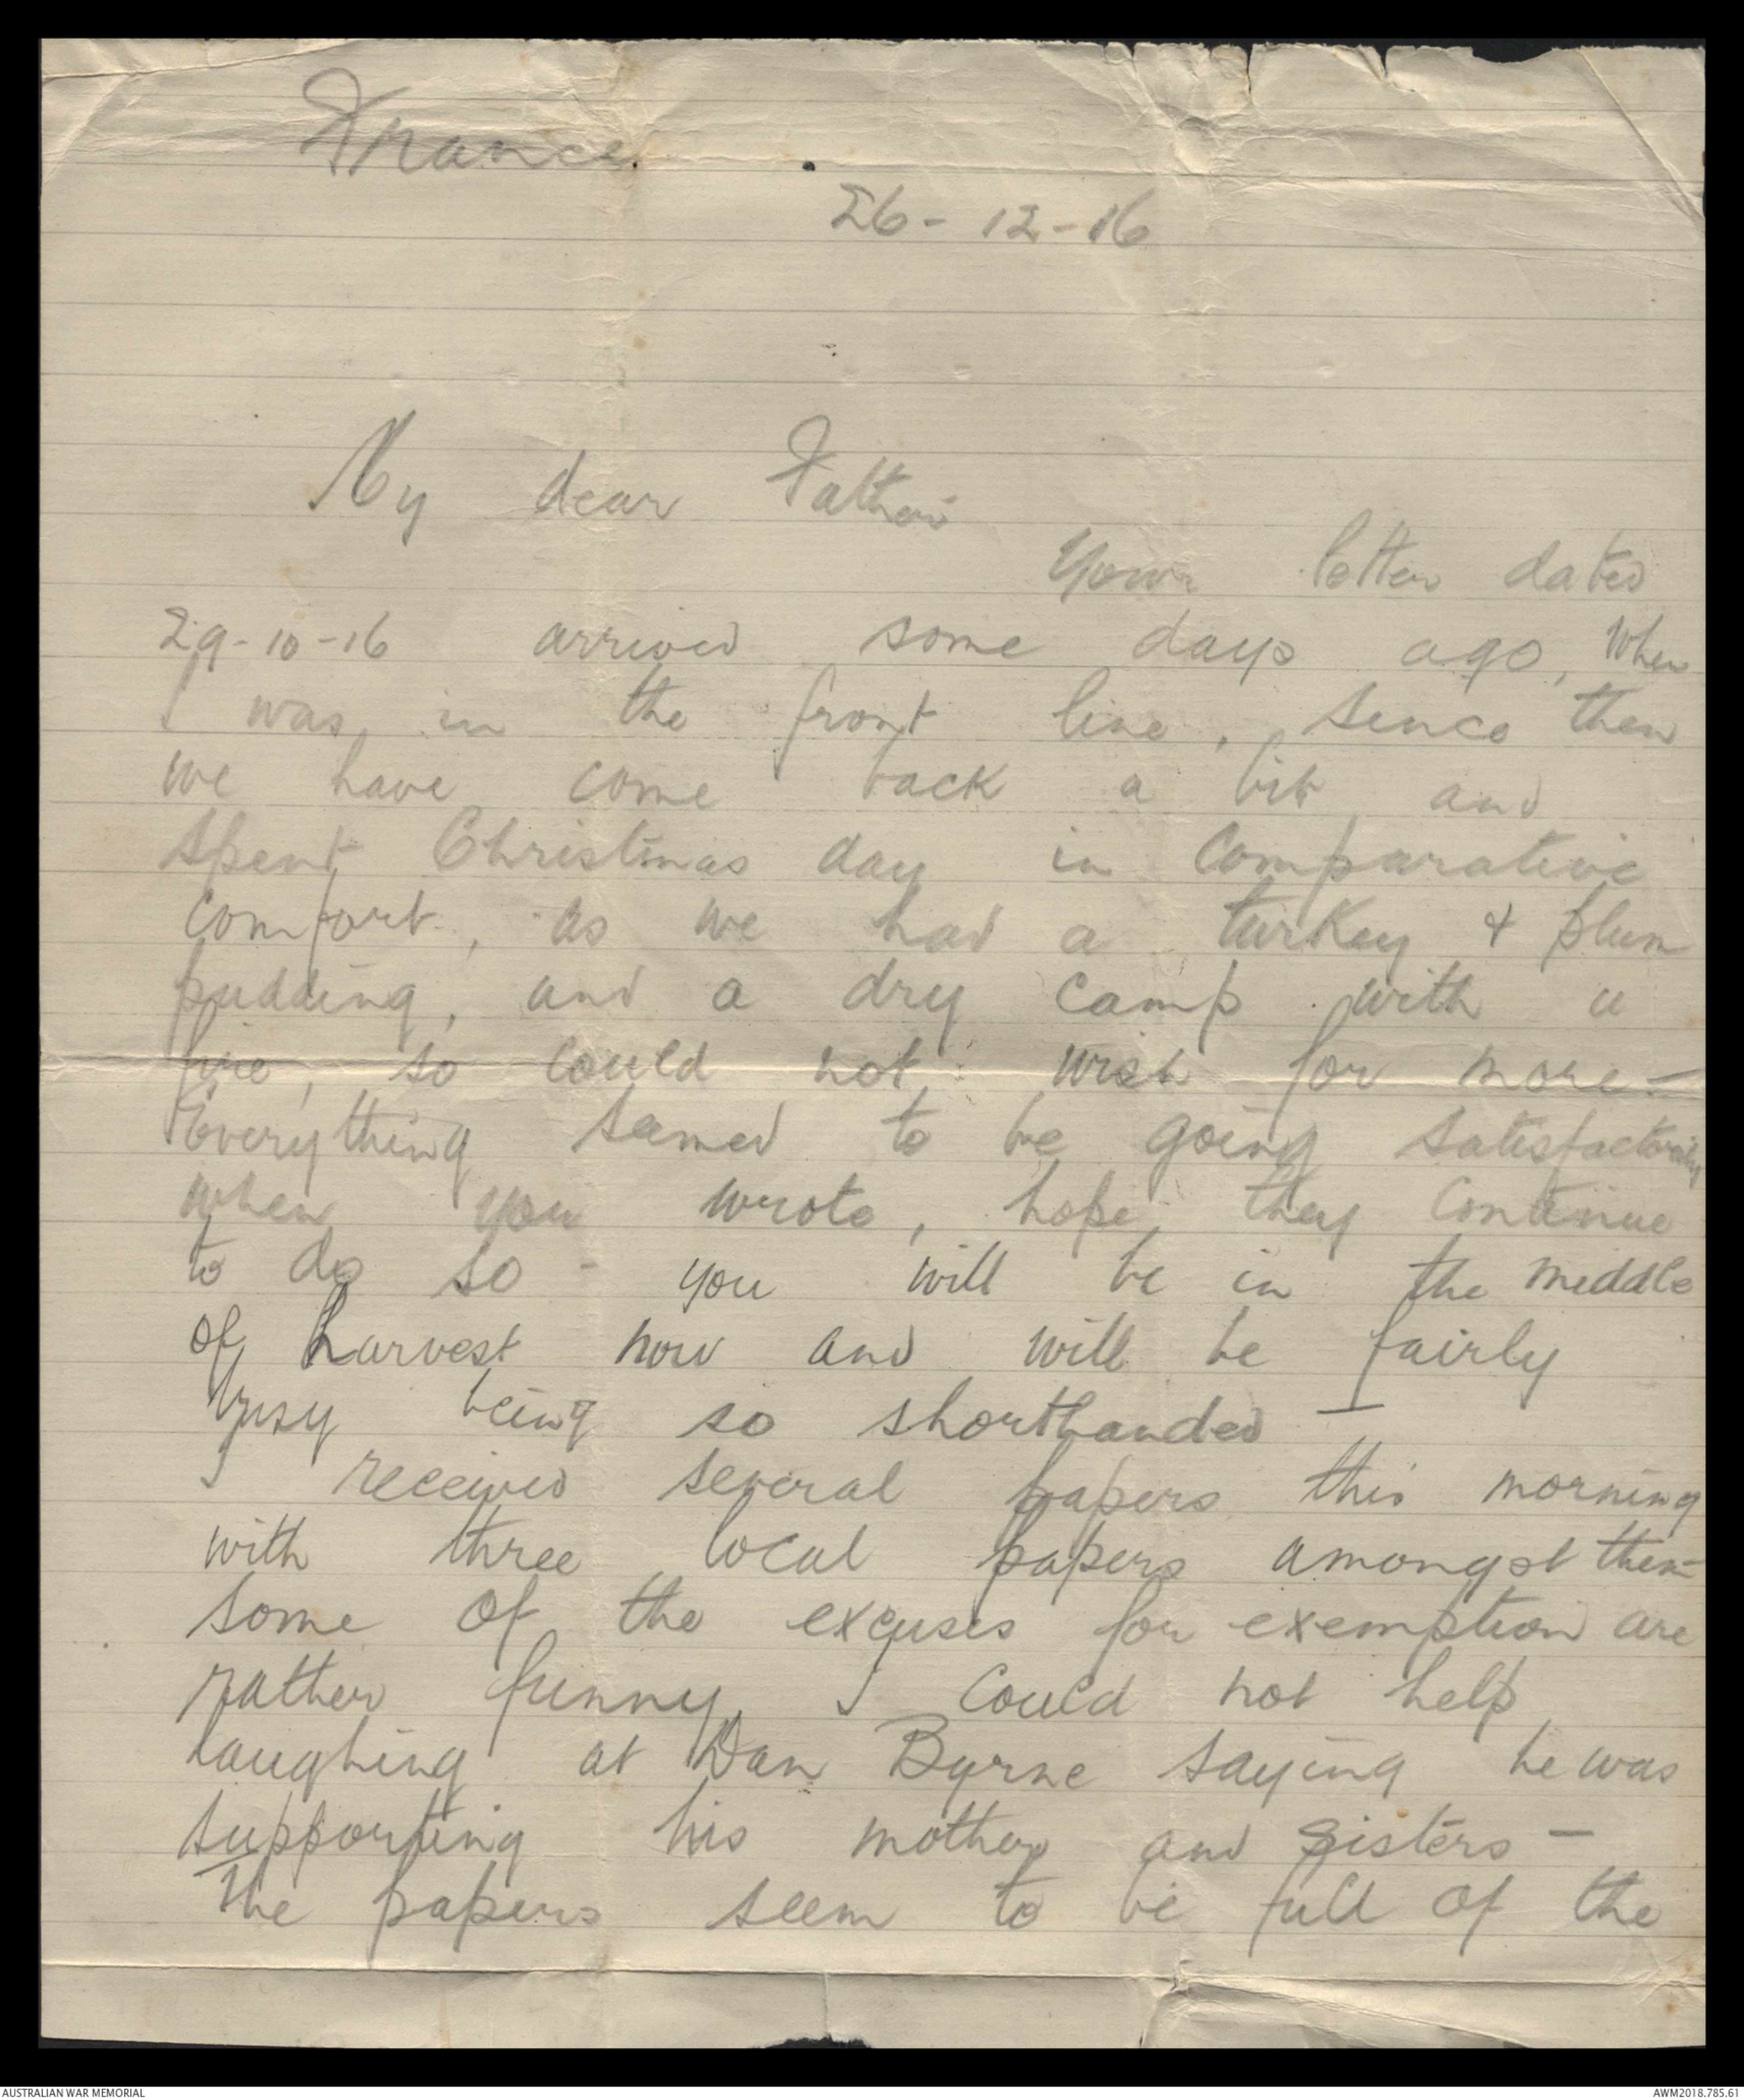 France.
26-12-16
My dear Father
Your letter dated
29-10-16 arrived some days ago, when
I was in the front line, since then
we have come back a bit and
spent Christmas day in comparative
comfort, as we had a turkey & plum
pudding, and a dry camp with a
fire, so could not wish for more -
Everything seemed to be going satisfactorily
when you wrote, hope they continue
to do so - you will be in the middle
of harvest now and will be fairly
busy being so shorthanded -
I received several papers this morning
with three local papers amongst them -
some of the excuses for exemption are
rather funny, I could not help
laughing at Dan Byrne saying he was
supporting his mother and sisters -
The papers seem to be full of the
AUSTRALIAN WAR MEMORIAL
AWM2018.785.61